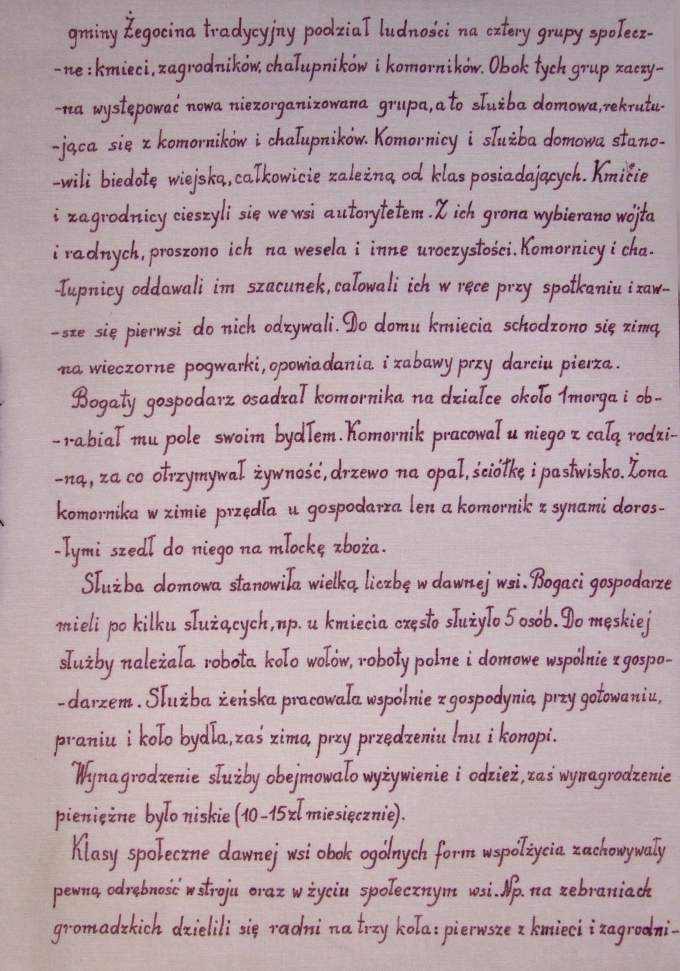 gminy Żegocina tradycyjny podział ludności na cztery grupy społecz-
-ne: kmieci, zagrodników, chałupników i komorników. Obok tych grup zaczy-
-na występować nowa niezorganizowana grupa, a to służba domowa, rekrutu-
-jąca się z komorników i chałupników. Komornicy i służba domowa stano-
-wili biedotę wiejską, całkowicie zależną od klas posiadających. Kmicie
i zagrodnicy cieszyli się we wsi autorytetem. Z ich grona wybierano wójta
i radnych, proszono ich na wesela i inne uroczystości. Komornicy i cha-
-łupnicy oddawali im szacunek, całowali ich w ręce przy spotkaniu i zaw-
-sze się pierwsi do nich odzywali. Do domu kmiecia schodzono się zimą
na wieczorne pogwarki, opowiadania i zabawy przy darciu pierza.
Bogaty gospodarz osadzał komornika na działce około 1morga i ob-
-rabiał mu pole swoim bydłem. Komornik pracował u niego z całą rodzi-
-ną, za co otrzymywał żywność, drzewo na opał, ściółkę i pastwisko. Żona
komornika w zimie przędła u gospodarza len a komornik z synami doros-
-łymi szedł do niego na młockę zboża.
Służba domowa stanowiła wielką liczbę w dawnej wsi. Bogaci gospodarze
mieli po kilku służących, np. u kmiecia często służyło 5 osób. Do męskiej
służby należała robota koło wołów, roboty polne i domowe wspólnie z gospo-
-darzem. Służba żeńska pracowała wspólnie z gospodynią przy gotowaniu,
praniu i koło bydła, zaś zimą przy przędzeniu lnu i konopi.
Wynagrodzenie służby obejmowało wyżywienie i odzież, zaś wynagrodzenie
pieniężne było niskie (10-15zł miesięcznie).
Klasy społeczne dawnej wsi obok ogólnych form współżycia zachowywały
pewną odrębność w stroju oraz w życiu społecznym wsi. Np. na zebraniach
gromadzkich dzielili się radni na trzy koła: pierwsze z kmieci i zagrodni-